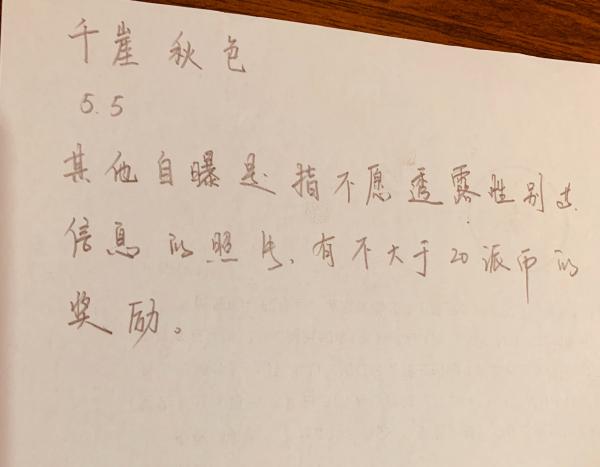 千崖秋色
5.5
其他自曝是指不愿透露性别其
信息的照片,有不大于20派币的
奖励。